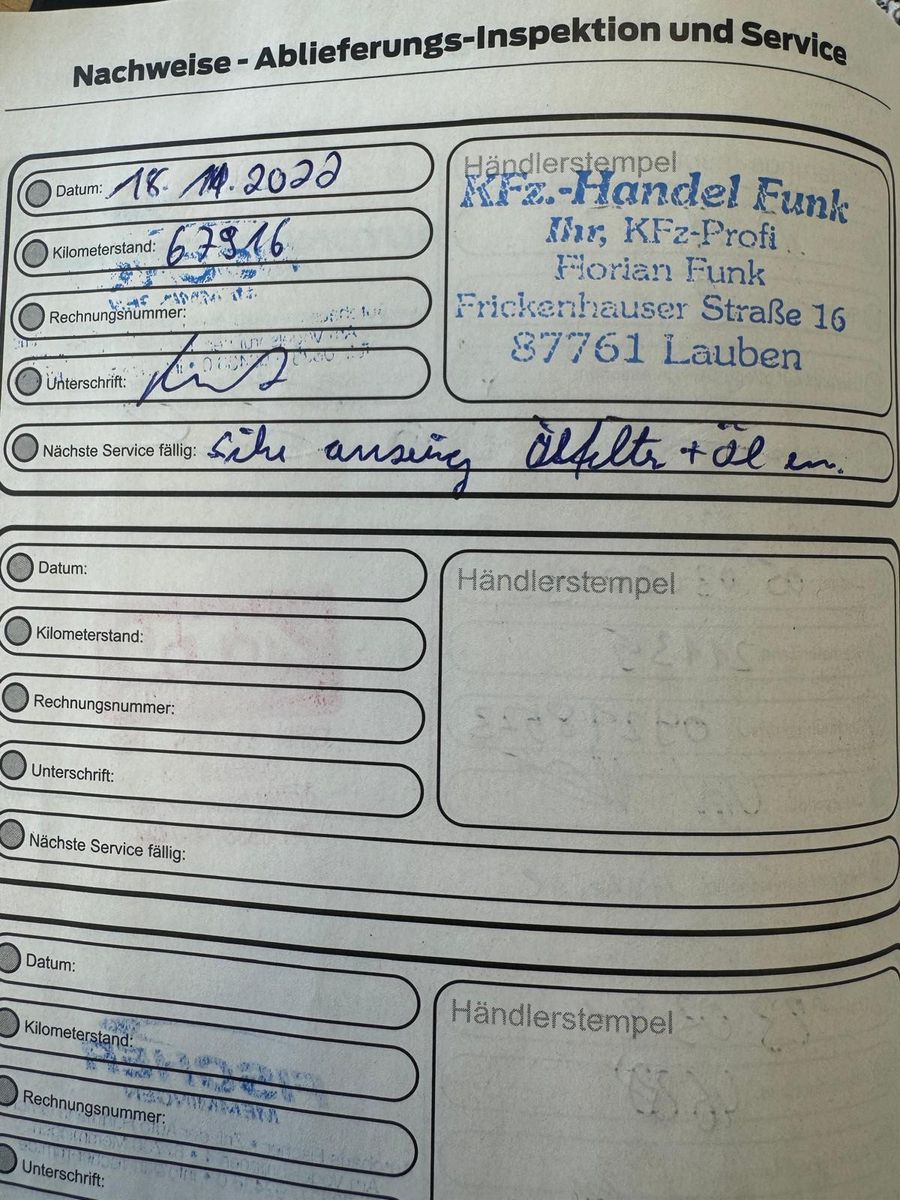 Nachweise - Ablieferungs-Inspektion und Service
Datum: 18. 11. 2022
Kilometerstand: 67916
Rechnungsnummer:
Unterschrift:
Nächste Service fällig: Ölfilter + Öl
Händlerstempel
KFz.-Handel Funk
Ihr, KFz-Profi
Florian Funk
Frickenhauser Straße 16
87761 Lauben
Datum:
Kilometerstand:
Rechnungsnummer:
Unterschrift:
Nächste Service fällig:
Händlerstempel
Datum:
Kilometerstand:
Rechnungsnummer:
Unterschrift:
Händlerstempel